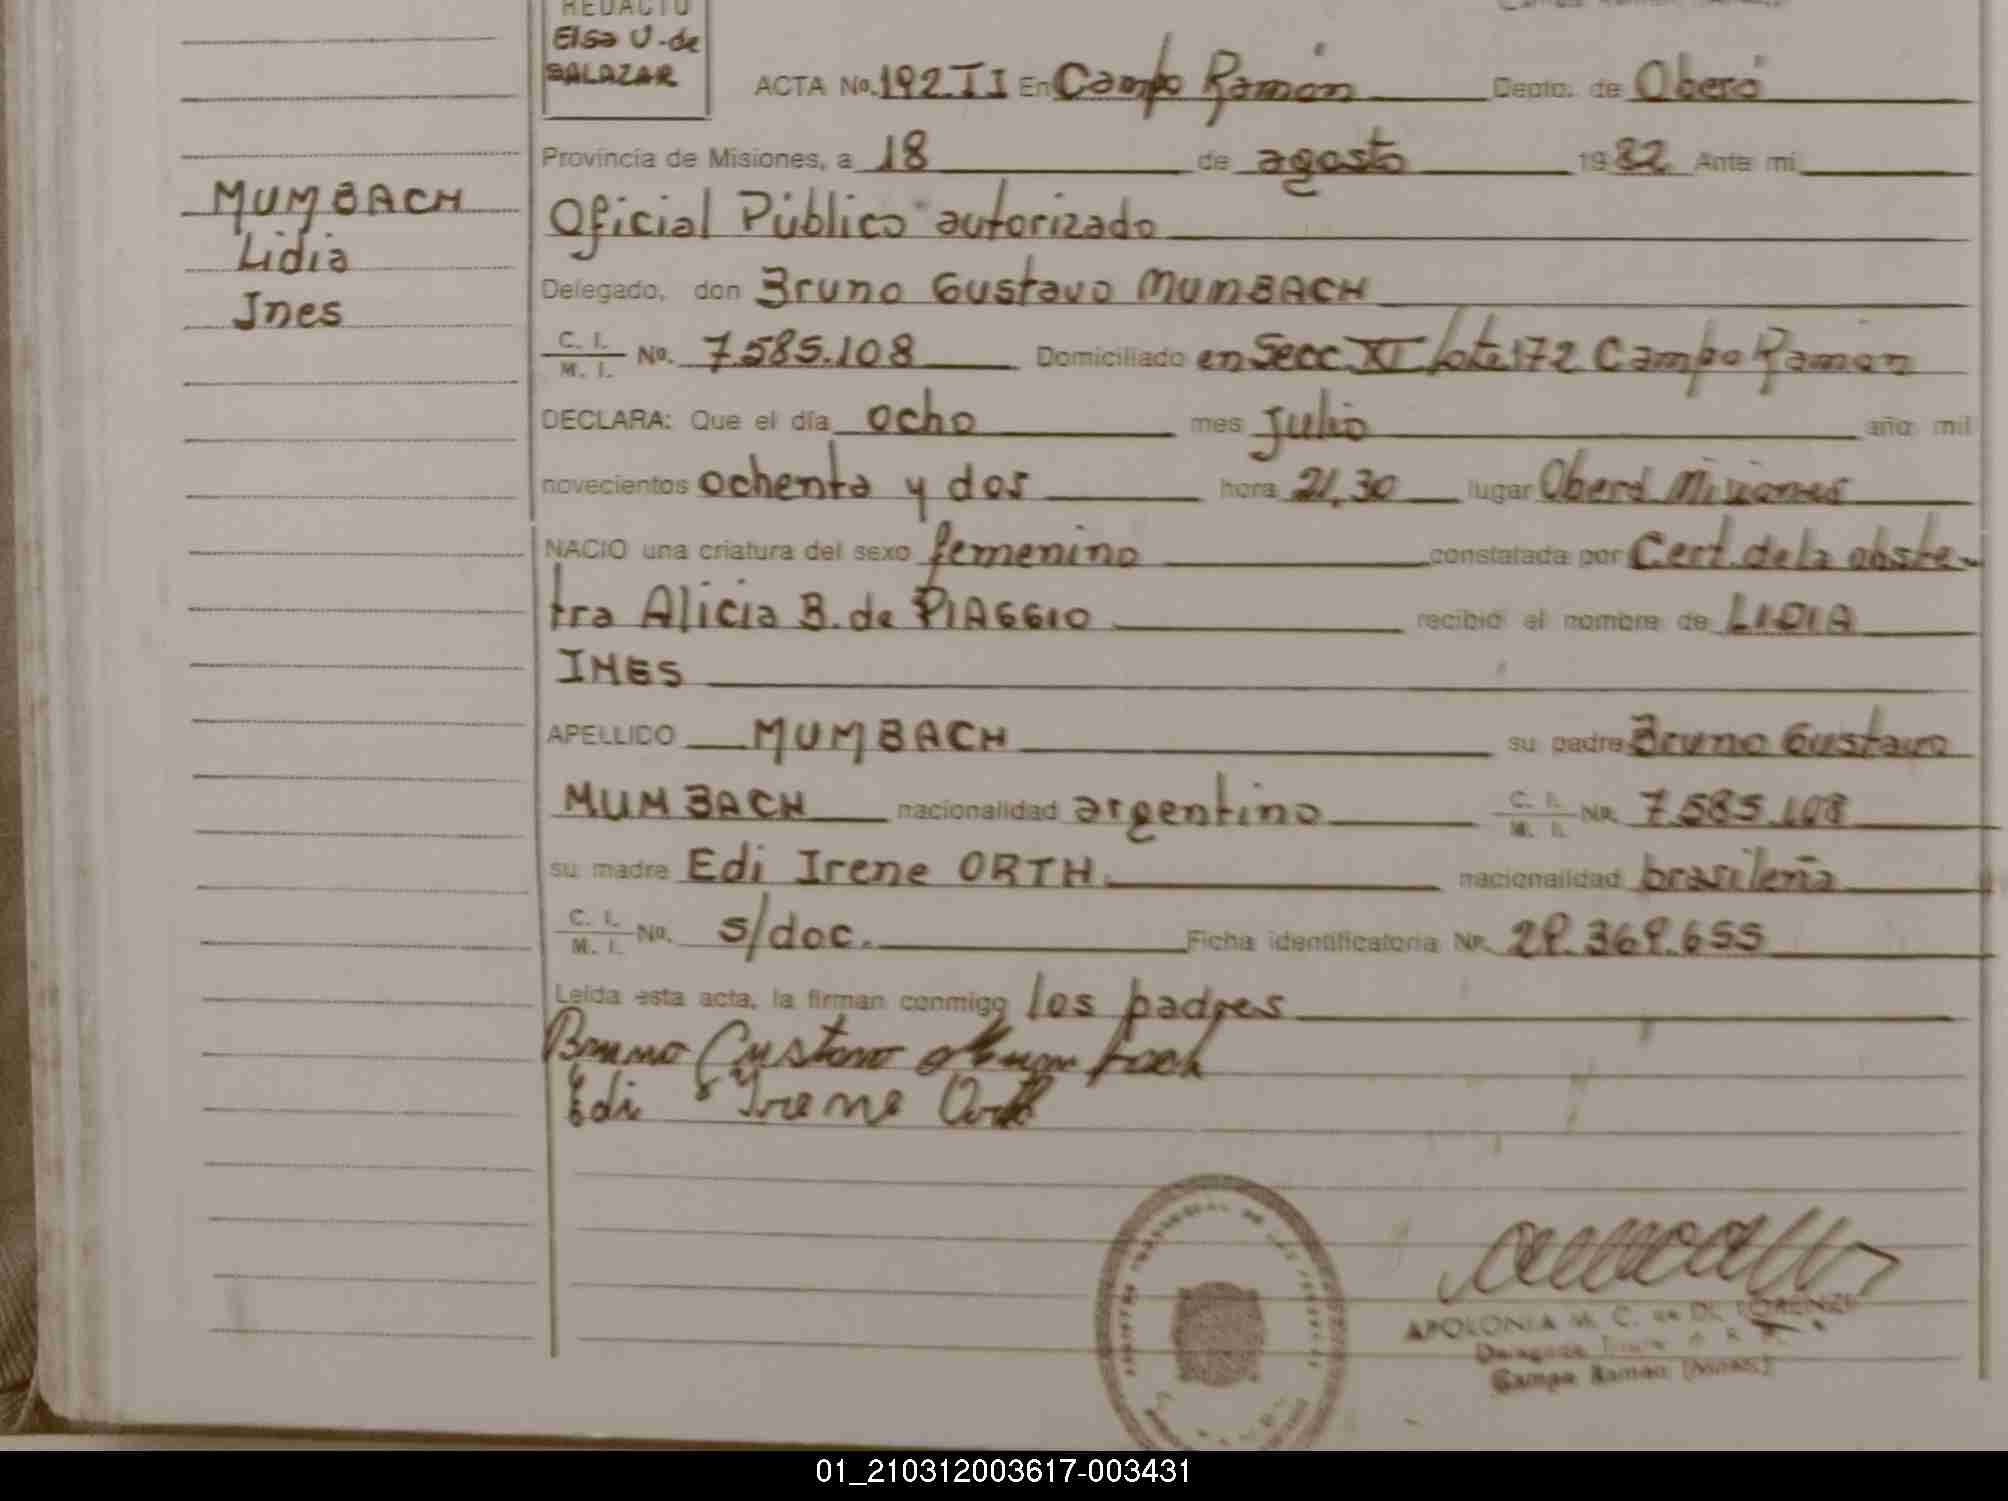 REDACTO
Elsa U. de
SALAZAR
ACTA No. 192.TI En Campo Ramón Depto. de Oberá
Provincia de Misiones, a 18 de agosto 1982 Ante mi
MUMBACH
Lidia
Ines
Oficial Público autorizado
Delegado, don Bruno Gustavo MUMBACH
C. I. / M. I. No. 7.585.108 Domiciliado en Secc. XI lote 172 Campo Ramón
DECLARA: Que el día ocho mes Julio año mil
novecientos ochenta y dos hora 21,30 lugar Oberá Misiones
NACIO una criatura del sexo femenino constatada por Cert. de la obste-
tra Alicia B. de PIAGGIO recibió el nombre de LIDIA
INES
APELLIDO MUMBACH su padre Bruno Gustavo
MUMBACH nacionalidad argentino C. I. / M. I. Nº. 7.585.108
su madre Edi Irene ORTH. nacionalidad brasileña
C. I. / M. I. No. s/doc. Ficha identificatoria Nº. 29.369.655
Leída esta acta, la firman conmigo los padres
Bruno Gustavo Mumbach
Edi Irene Orth
APOLONIA M. C. de DI LORENZI
Delegada
Campo Ramón (Mnes)
01_210312003617-003431